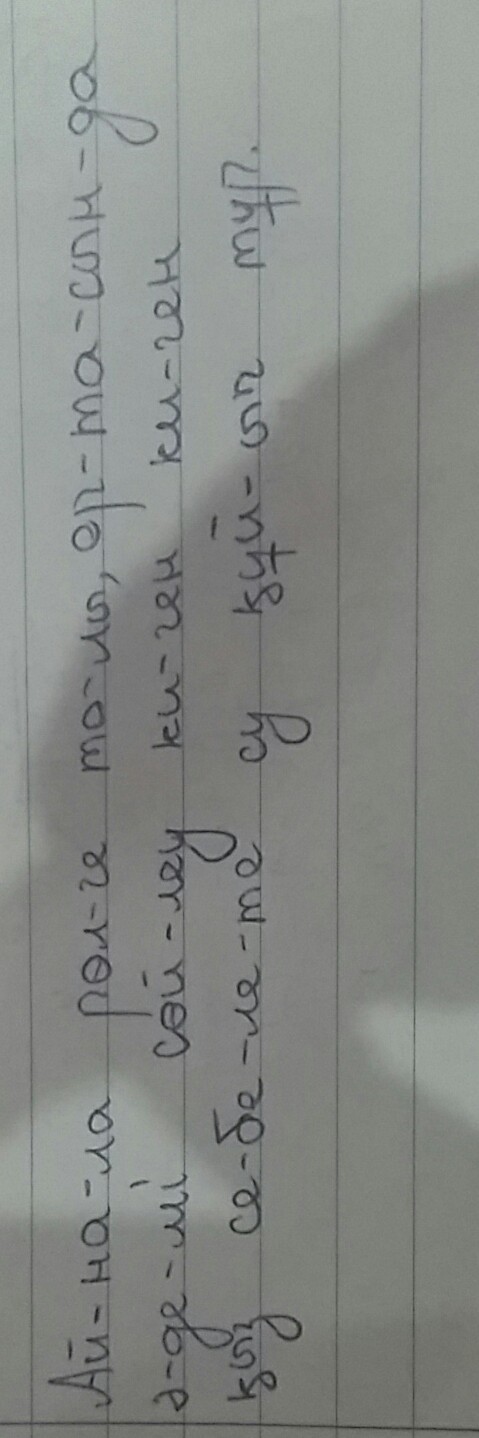 Ай-на-ла гөл-ге то-лы, ор-та-сын-да
ә-де-мі сөй-леу ки-ген ки-ген
қыз се-бе-ле-те су құй-ып тұр.